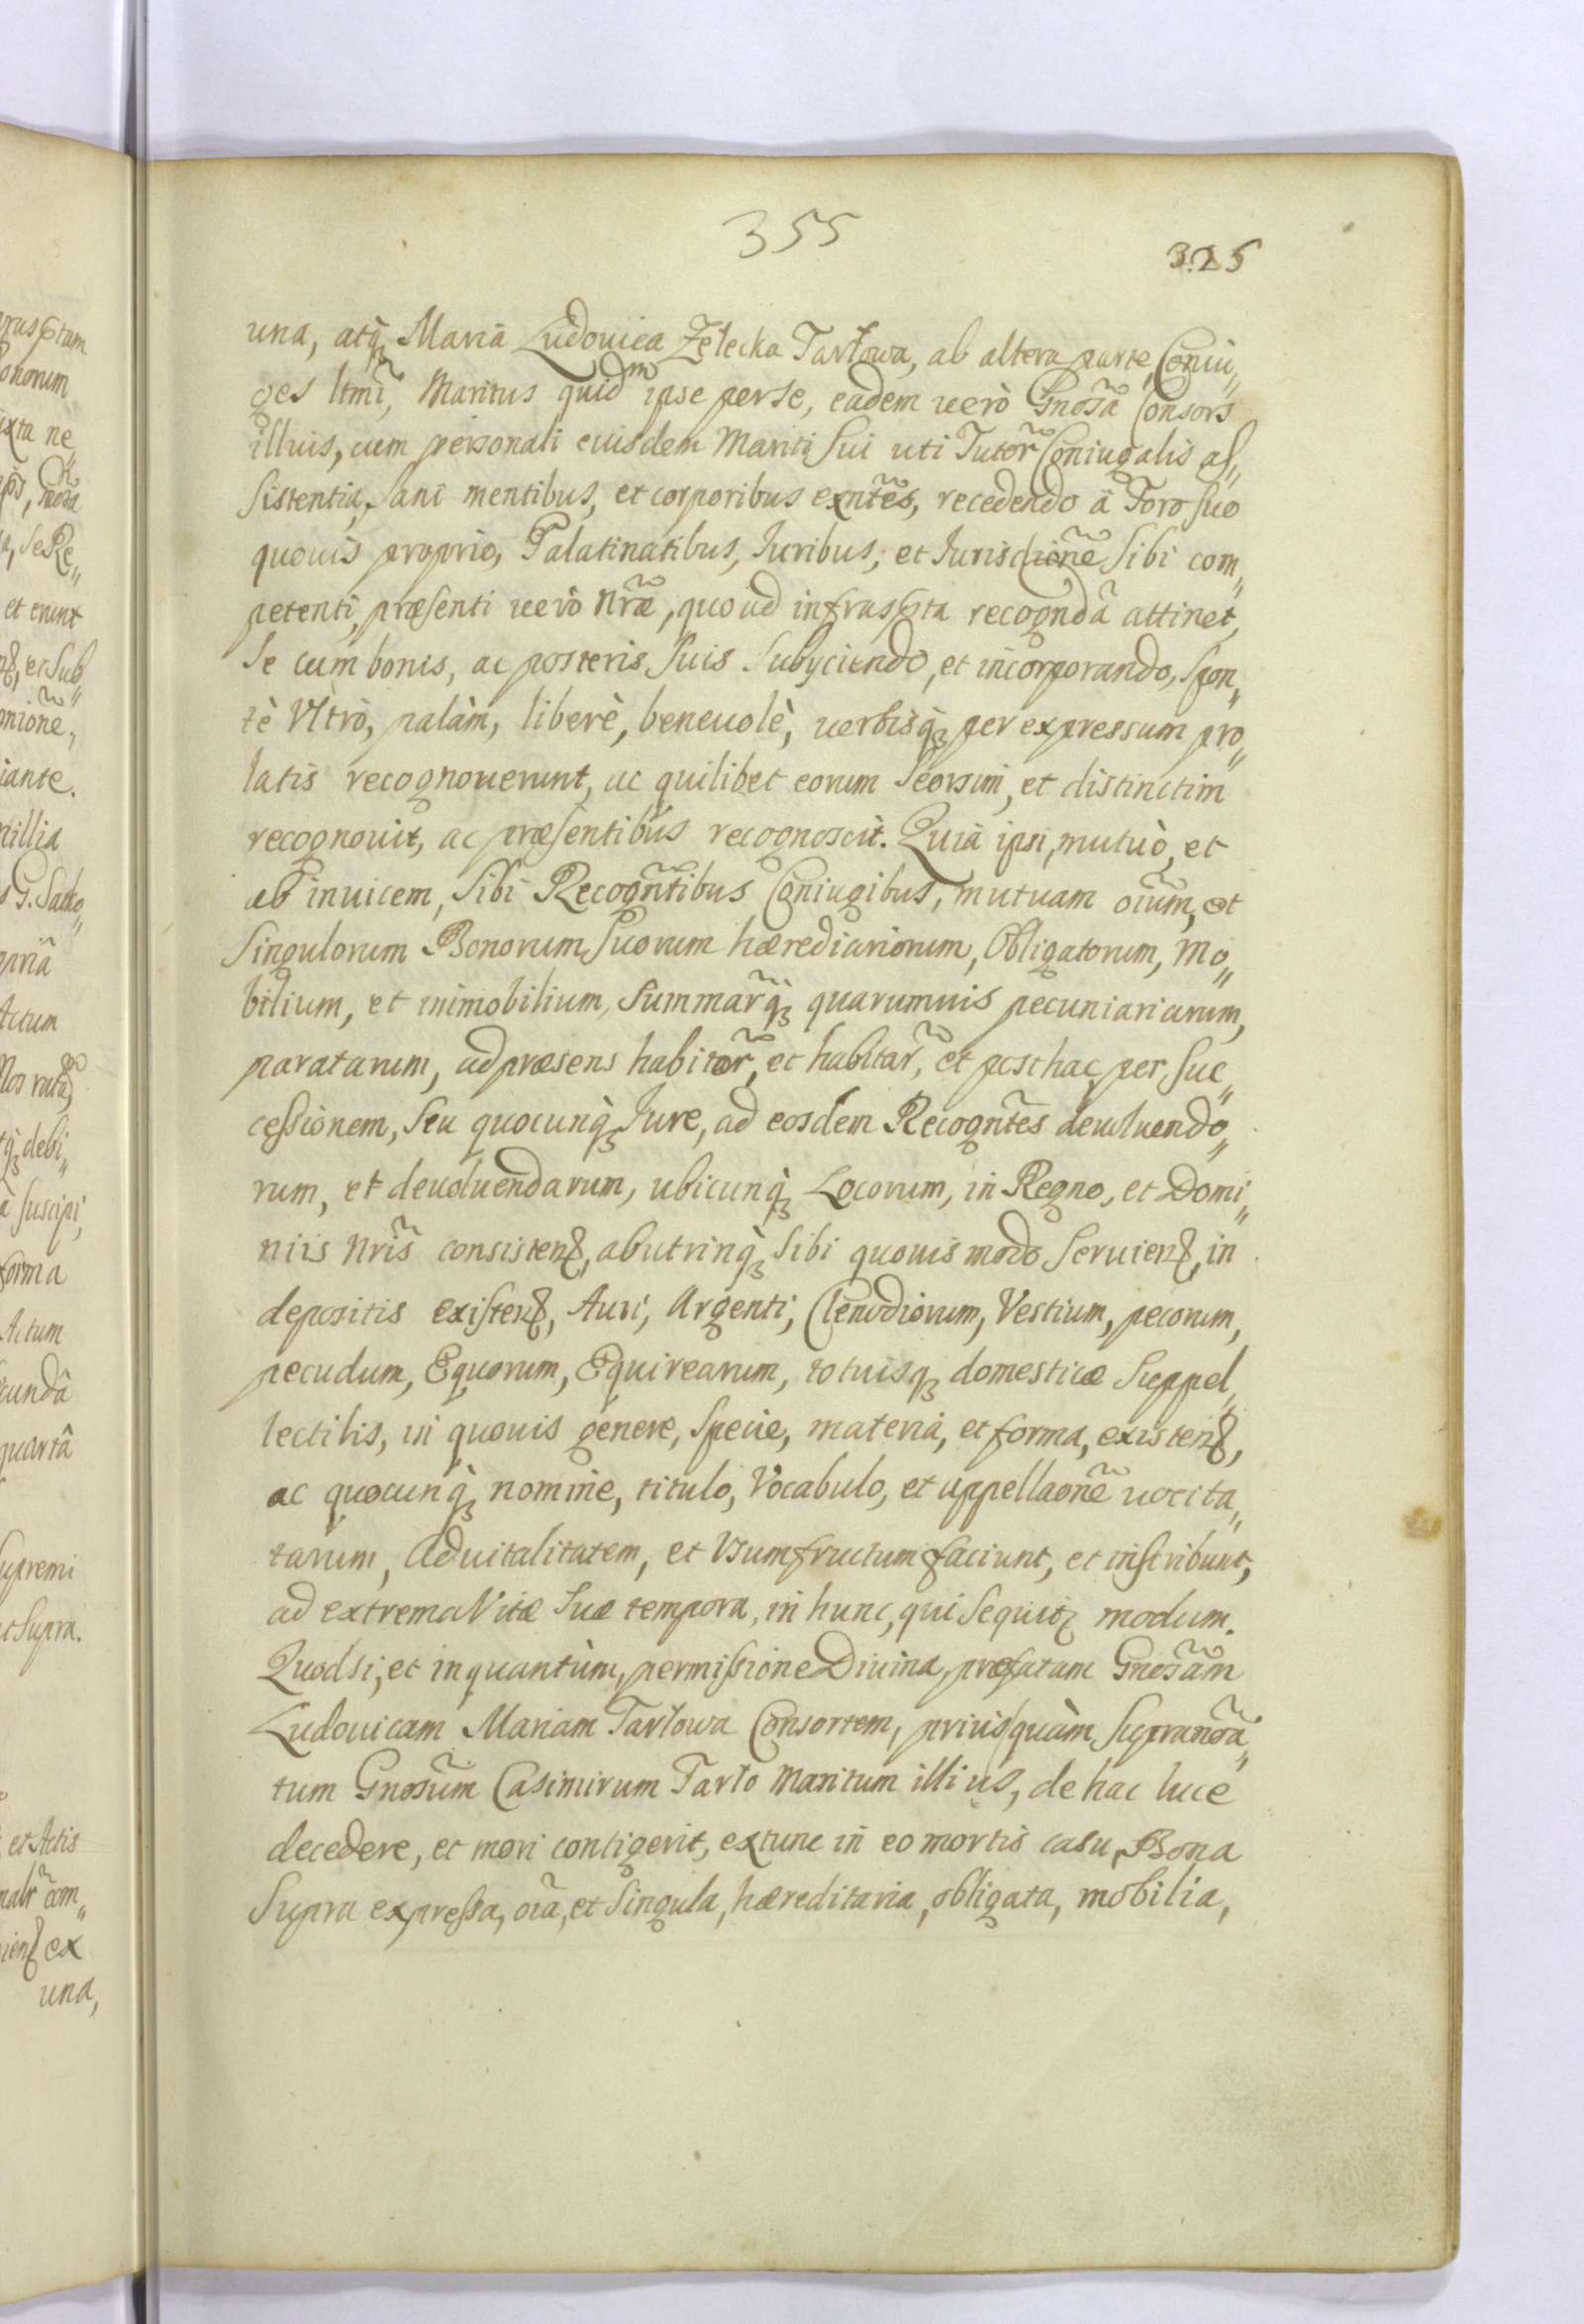 355
325
una, atq̃ Maria Ludouica Zelecka Tarłowa, ab altera parte, Coniu„
ges ltmi, Maritus quidm ipse per se, eadem uerò Gnosa Consors
illius, cum personali eiusdem Mariti Sui uti Tutor̃ Coniugalis as„
sistentia, sani mentibus, et corporibus exñtes, recedendo à Foro suo
quouis proprio, Palatinatibus, Iuribus, et Iurisdictioñe Sibi com„
petenti, præsenti uerò Nræ, quo ad infrascpta recogndã attinet,
Se cum bonis, ac posteris Suis Subijciendo, et incorporando, Spon„
tè Vltrò, palàm, liberè, beneuolè, uerbisq̃ per expressum pro„
latis recognouerunt, ac quilibet eorum Seorsim, et distinctim
recognouit, ac præsentibus recognoscit. Quià ipsi, mutuò, et
ab inuicem, Sibi Recogñtibus Coniugibus, mutuam oium, et
Singulorum Bonorum Suorum hærediariorum, Obligatorum, Mo„
bilium, et inimobilium, Summarq̃ quarumuis pecuniariarum,
paratarum, ad præsens habitor̃, et habitar̃, et posthac per Suc„
cessionem, Seu quocunq̃ Iure, ad eosdem Recogñtes deuoluendo„
rum, et deuoluendarum, ubicunq̃ Locorum, in Regno, et Domi„
niis Nris consisten., ab utrinq̃ Sibi quouis modo Seruien., in
depositis existen., Auri, Argenti, Clenodiorum, Vestium, pecorum,
pecudum, Equorum, Equirearum, totuisq̃ domesticæ Suppel„
lectilis, in quouis genere, Specie, materia, et forma, existen.,
ac quocunq̃ nomine, titulo, Vocabulo, et appellaoñe uocita„
tarum, Aduitalitatem, et Vsumfructum faciunt, et inscribunt,
ad extrema Vitæ Suæ tempora, in hunc, qui Sequitr modum.
Quodsi, et inquantùm, permissione Diuina, præfatam Gnosam
Ludouicam Mariam Tarłowa Consortem, priusquàm Supranoia„
tum Gnosum Casimirum Tarło Maritum illius, de hac luce
decedere, et mori contigerit, extunc in eo mortis casu, Bona
Supra expressa, oia, et Singula, hæreditaria, obligata, mobilia,